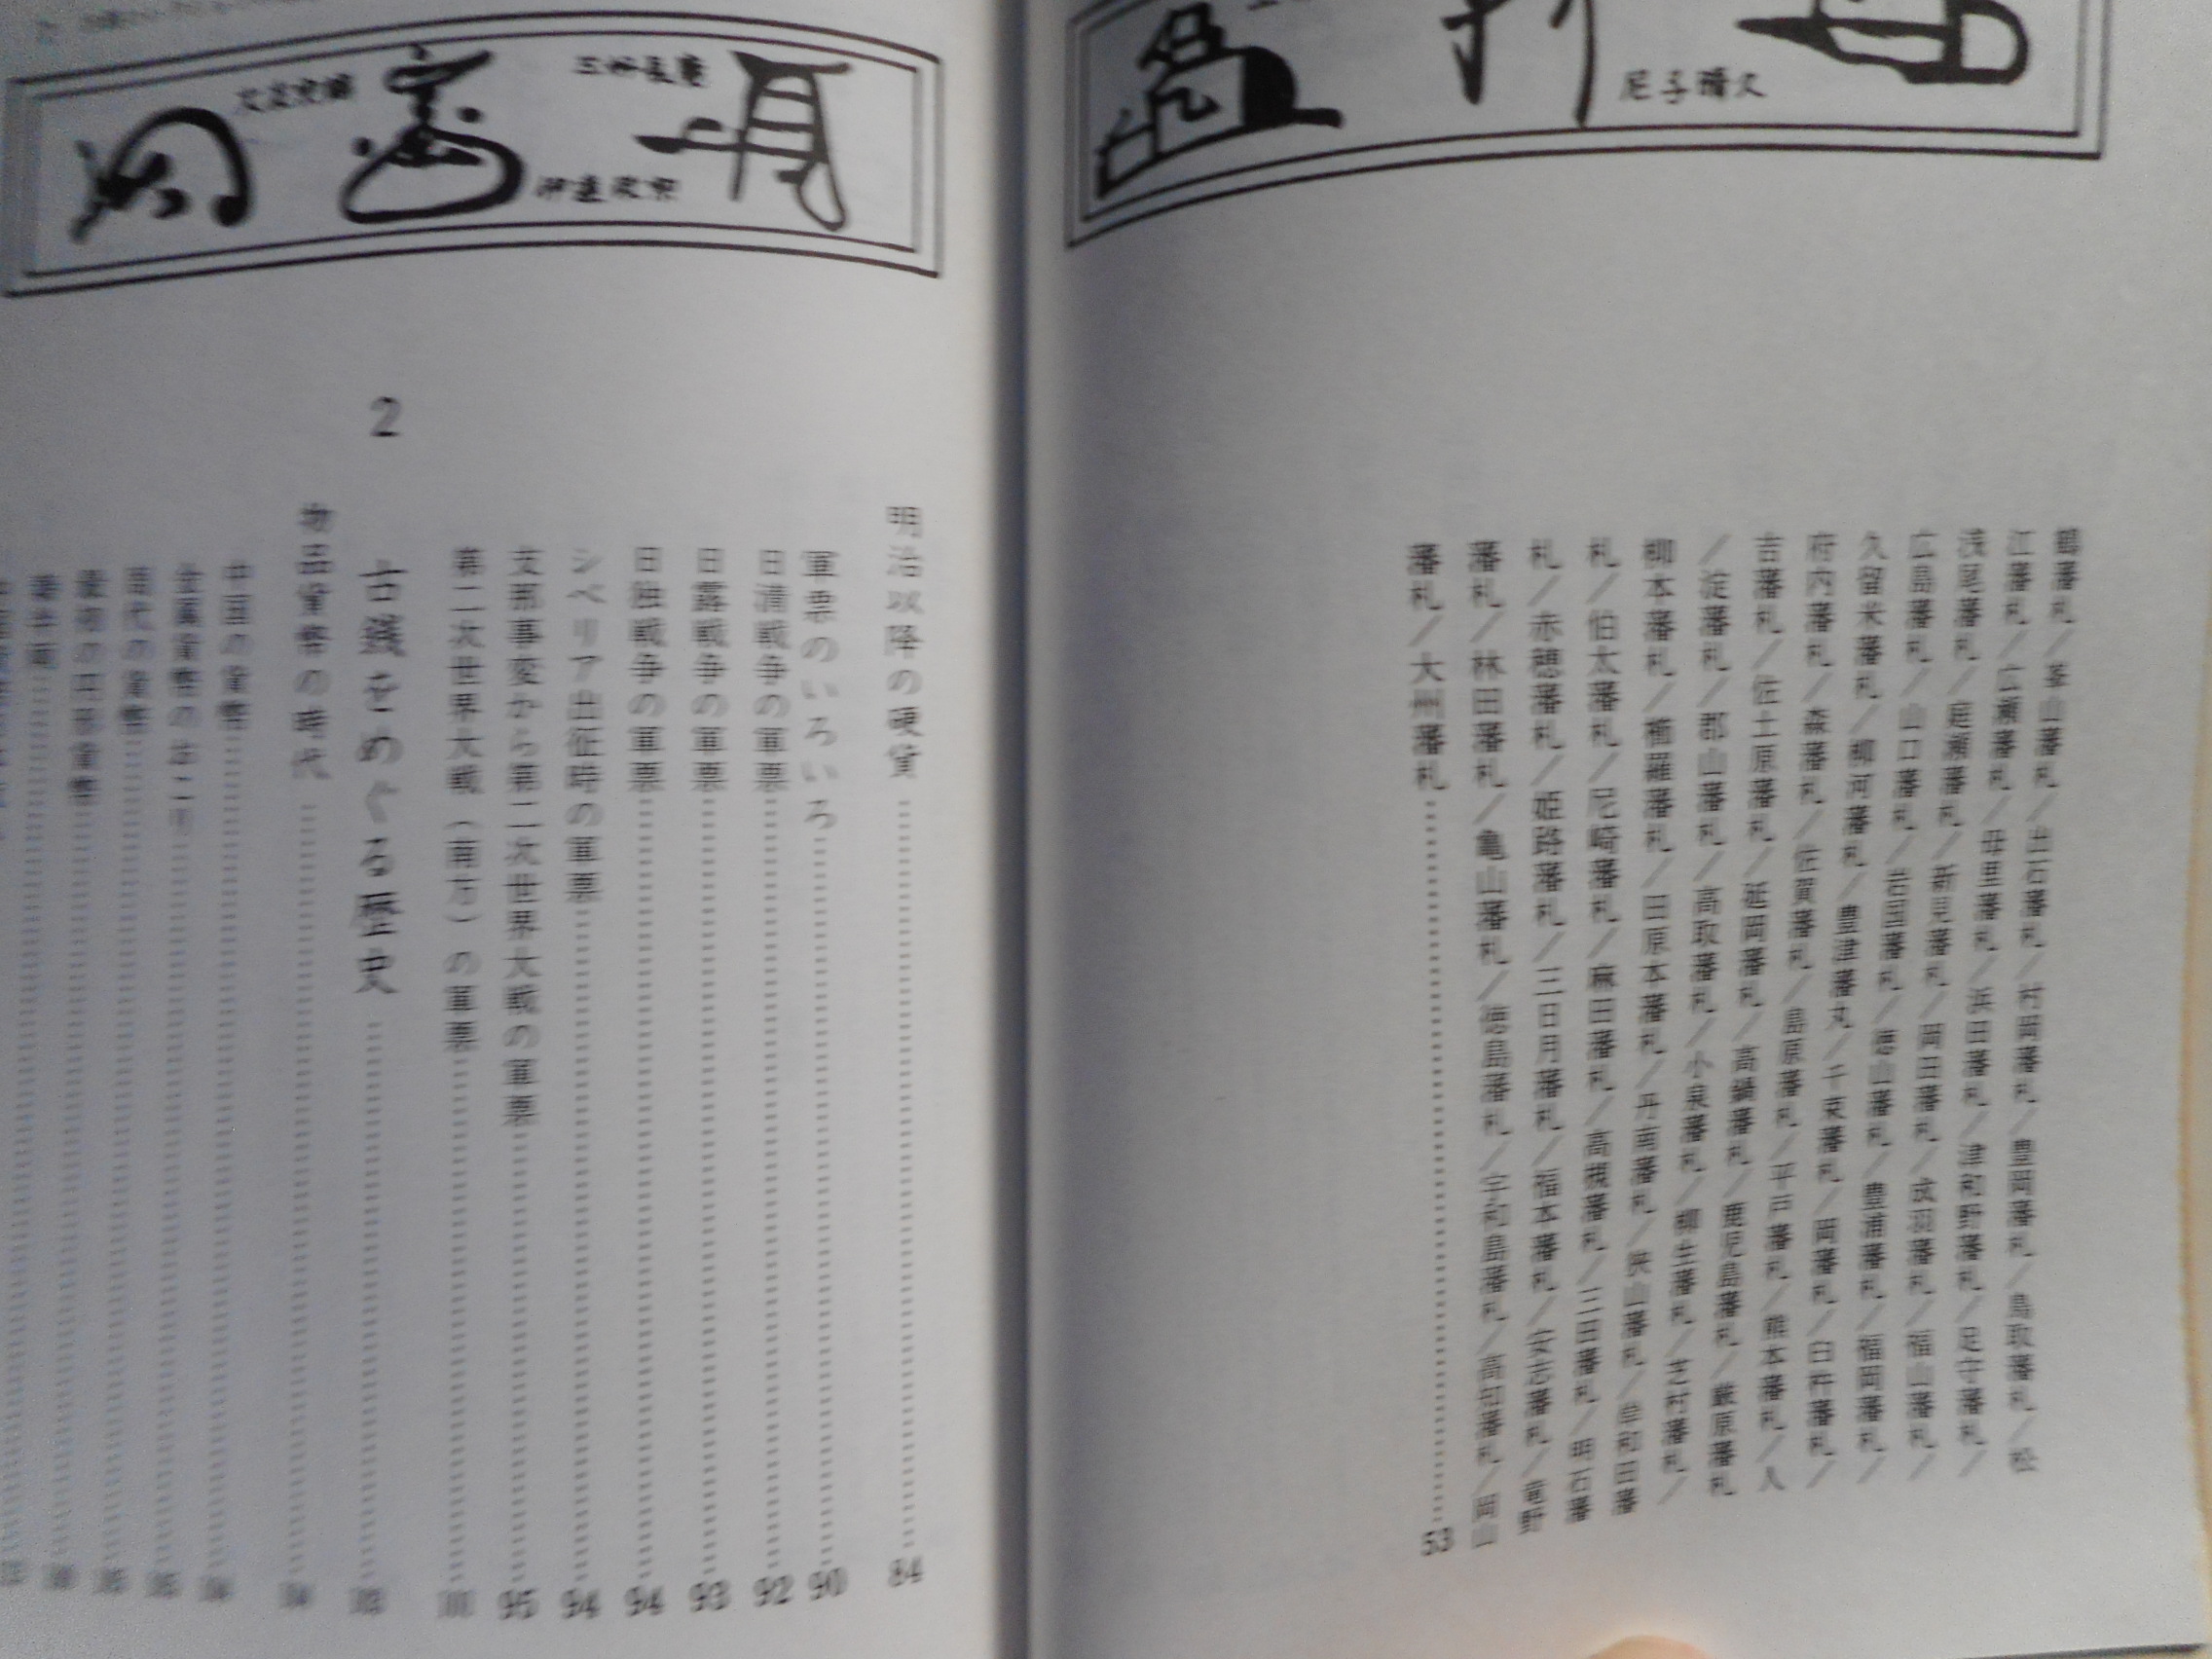 尼子晴久
鶴藩札／峯山藩札／出石藩札／村岡藩札／豊岡藩札／鳥取藩札／松
江藩札／広瀬藩札／母里藩札／浜田藩札／津和野藩札／足守藩札／
浅尾藩札／庭瀬藩札／新見藩札／岡田藩札／成羽藩札／福山藩札／
広島藩札／山口藩札／岩国藩札／徳山藩札／豊浦藩札／福岡藩札／
久留米藩札／柳河藩札／豊津藩札／千束藩札／岡藩札／臼杵藩札／
府内藩札／森藩札／佐賀藩札／島原藩札／平戸藩札／熊本藩札／人
吉藩札／佐土原藩札／延岡藩札／高鍋藩札／鹿児島藩札／厳原藩札
／淀藩札／郡山藩札／高取藩札／小泉藩札／柳生藩札／芝村藩札／
柳本藩札／櫛羅藩札／田原本藩札／丹南藩札／狭山藩札／岸和田藩
札／伯太藩札／尼崎藩札／麻田藩札／高槻藩札／三田藩札／明石藩
札／赤穂藩札／姫路藩札／三日月藩札／福本藩札／安志藩札／竜野
藩札／林田藩札／亀山藩札／徳島藩札／宇和島藩札／高知藩札／岡山
藩札／大州藩札……53
三好長慶
伊達政宗
明治以降の硬貨……84
軍票のいろいろ……90
日清戦争の軍票……92
日露戦争の軍票……93
日独戦争の軍票……94
シベリア出征時の軍票……94
支那事変から第二次世界大戦の軍票……95
第二次世界大戦（南方）の軍票……
2
古銭をめぐる歴史……
物品貨幣の時代……
中国の貨幣……
金属貨幣のおこり……
周代の貨幣……
最初の円形貨幣……
半両……